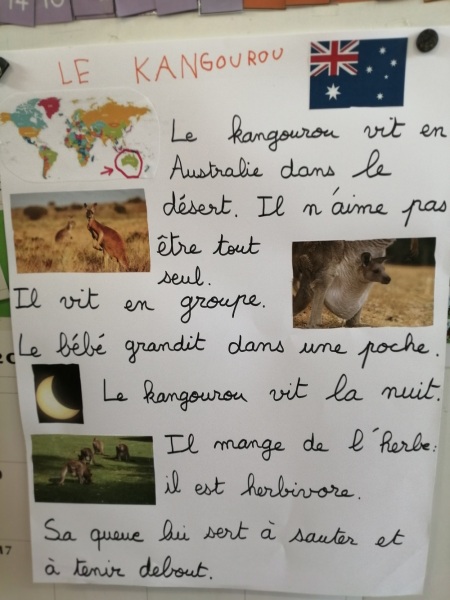 14 10
LE KANGOUROU
Le kangourou vit en
Australie dans le
désert. Il n'aime pas
être tout
seul.
Il vit en groupe.
Le bébé grandit dans une poche.
Le kangourou vit la nuit.
Il mange de l'herbe:
il est herbivore.
Sa queue lui sert à sauter et
à tenir debout.
17